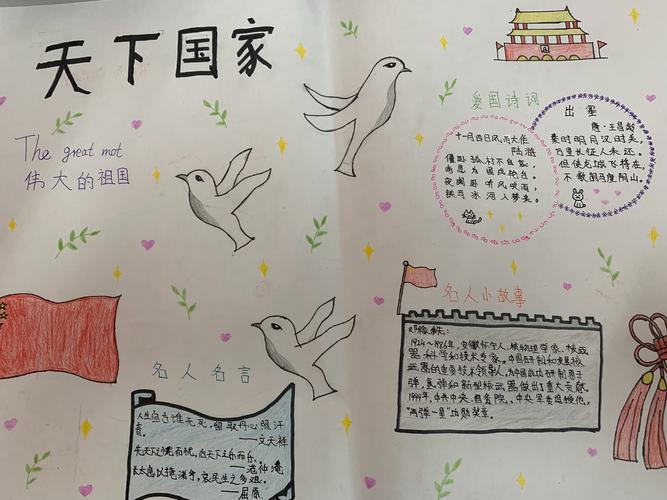 天下国家
The great mot
伟大的祖国
爱国诗词
十一月四日风雨大作
陆游
僵卧孤村不自哀,
尚思为国戍轮台。
夜阑卧听风吹雨,
铁马冰河入梦来。
出塞
唐·王昌龄
秦时明月汉时关,
万里长征人未还。
但使龙城飞将在,
不教胡马度阴山。
名人小故事
邓稼先:
1924~1986年,安徽怀宁人,核物理学家、核武
器科学和技术专家。中国研制和发展核
武器的重要技术领导人,为中国成功研制原子
弹、氢弹和新型核武器做出了重大贡献。
1999年,中共中央、国务院、中央军委追授他,
"两弹一星"功勋奖章。
名人名言
人生自古谁无死,留取丹心照汗
青。
——文天祥
先天下之忧而忧,后天下之乐而乐。
——范仲淹
太息以掩涕兮,哀民生之多艰。
——屈原